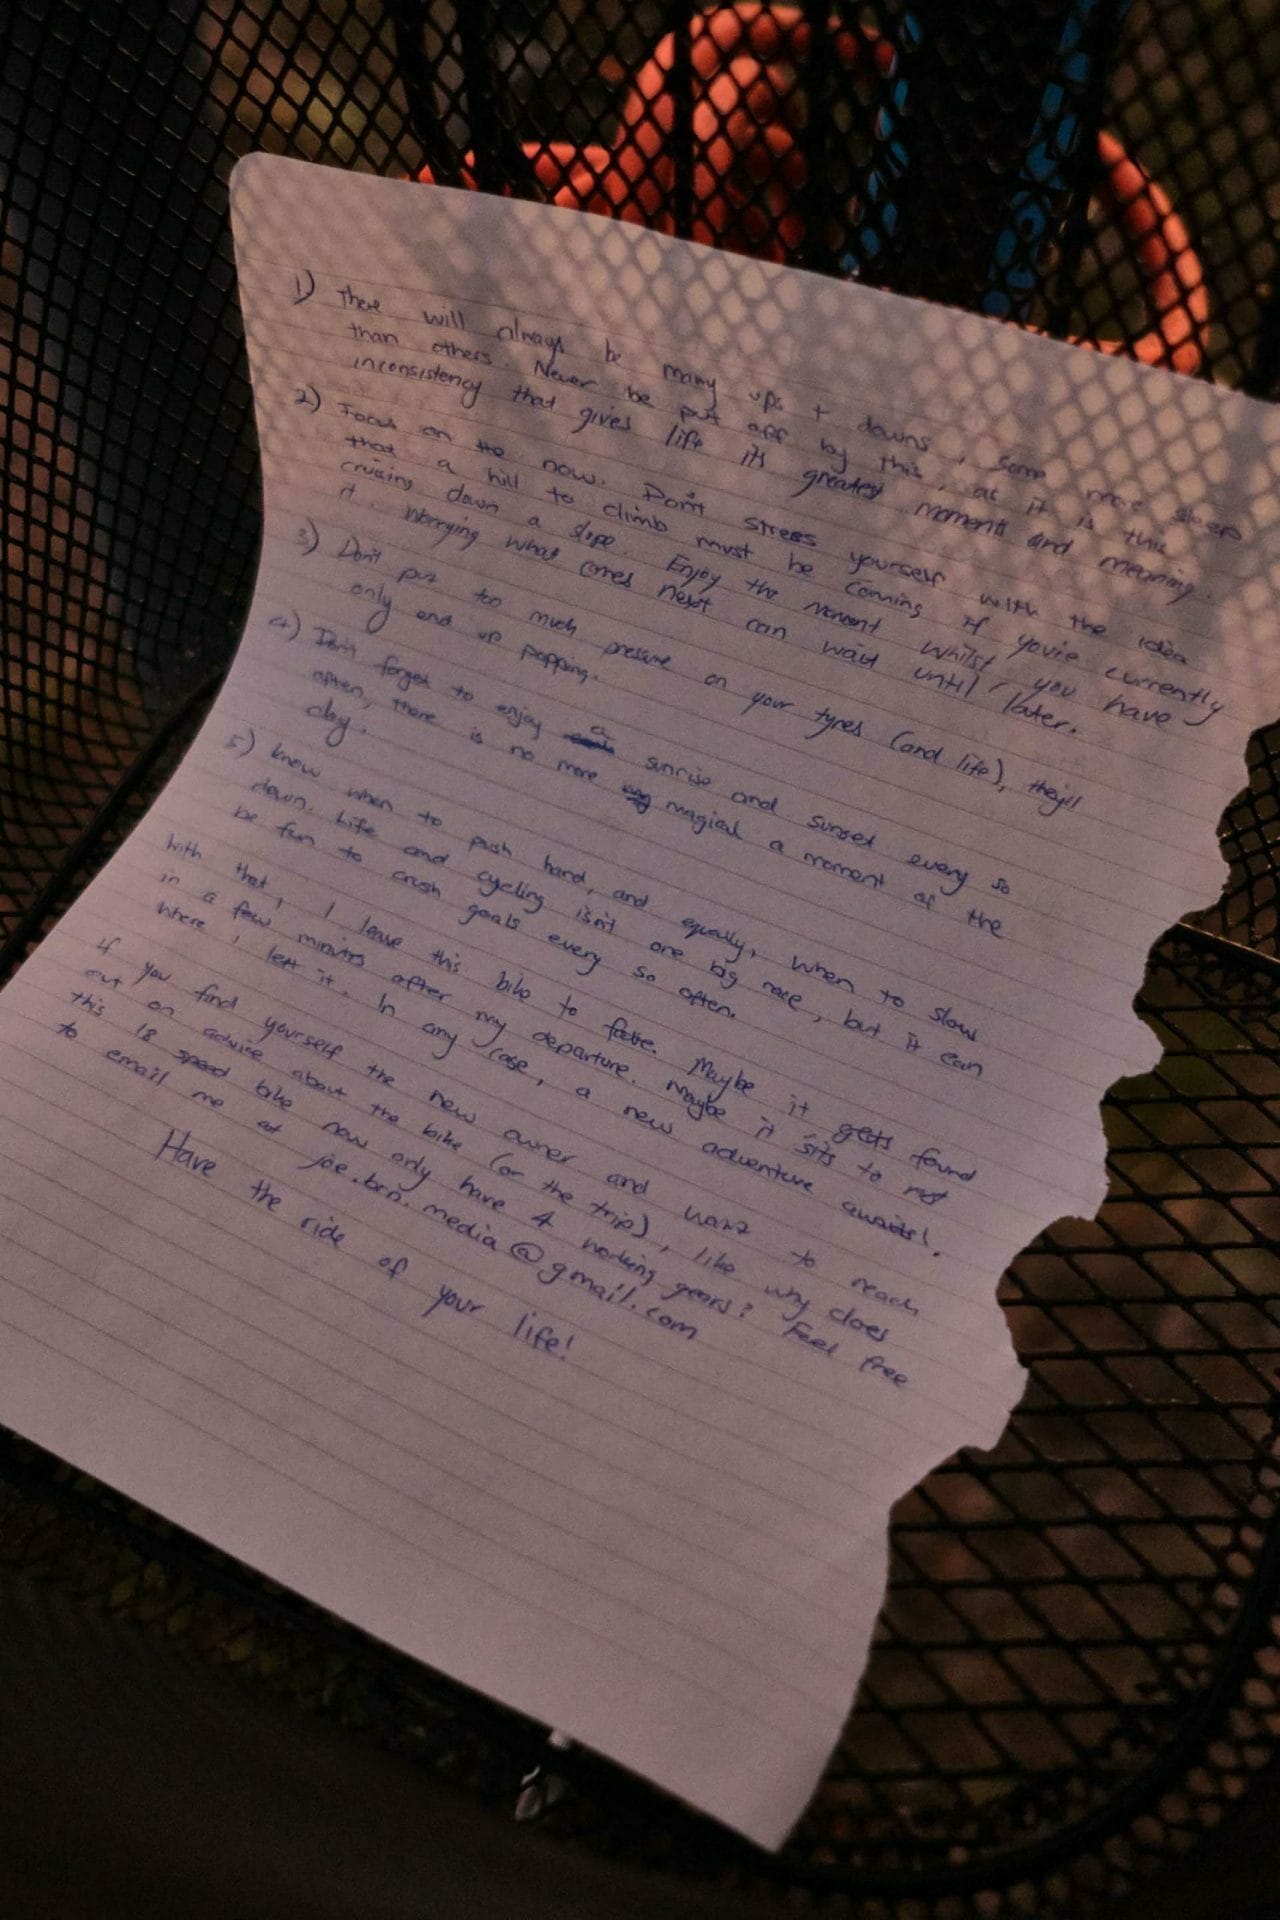 1) There will always be many ups + downs, some more steep
than others. Never be put off by this, as it is this
inconsistency that gives life its greatest moments and meaning.
2) Focus on the now. Don't stress yourself with the idea
that a hill to climb must be coming if you're currently
cruising down a slope. Enjoy the moment whilst you have
it. Worrying what comes next can wait until later.
3) Don't put too much pressure on your tyres (and life), they'll
only end up popping.
4) Don't forget to enjoy a sunrise and sunset every so
often, there is no more magical a moment of the
day.
5) Know when to push hard, and equally, when to slow
down. Life and cycling isn't one big race, but it can
be fun to crush goals every so often.
With that, I leave this bike to fate. Maybe it gets found
in a few minutes after my departure. Maybe it sits to rest
where I left it. In any case, a new adventure awaits!
If you find yourself the new owner and want to reach
out on advice about the bike (or the trip), like why does
this 18 speed bike now only have 4 working gears? Feel free
to email me at joe.brn.media@gmail.com
Have the ride of your life!